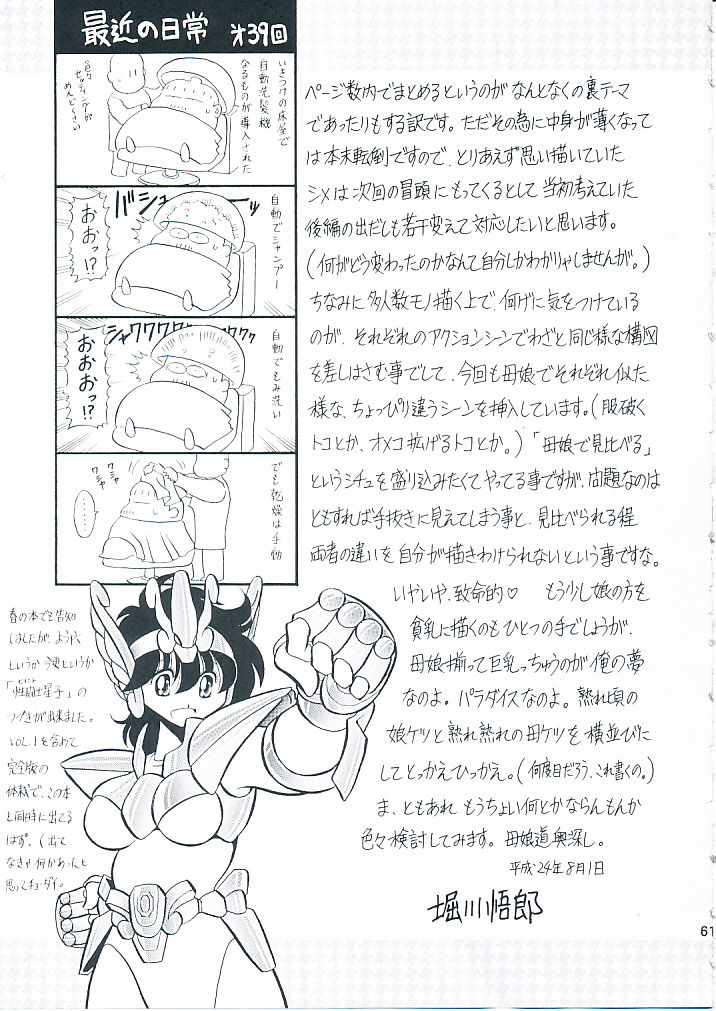 最近の日常 第39回
いきつけの床屋で
自動洗髪機
なるものが導入された
色々
セッティングが
めんどくさい
自動でシャンプー
バシューーーッ
おおっ!?
自動でもみ洗い
シャワワワワワワワ
おおおっ!?
でも乾燥は手動
ワシャ
ワシャ
……
ページ数内でまとめるというのがなんとなくの裏テーマ
であったりもする訳です。ただその為に中身が薄くなって
は本末転倒ですので、とりあえず思い描いていた
シメは次回の冒頭にもってくるとして当初考えていた
後編の出だしも若干変えて対応したいと思います。
(何がどう変わったのかなんて自分しかわかりゃしませんが。)
ちなみに多人数モノ描く上で、何げに気をつけている
のが、それぞれのアクションシーンでわざと同じ様な構図
を差しはさむ事でして、今回も母娘でそれぞれ似た
様な、ちょっぴり違うシーンを挿入しています。(服破く
トコとか、オメコ拡げるトコとか。)「母娘で見比べる」
というシチュを盛り込みたくてやってる事ですが、問題なのは
ともすれば手抜きに見えてしまう事と、見比べられる程
両者の違いを自分が描きわけられないという事ですな。
いやいや、致命的♡ もう少し娘の方を
貧乳に描くのもひとつの手でしょうが、
母娘揃って巨乳っちゅうのが俺の夢
なのよ。パラダイスなのよ。熟れ頃の
娘ケツと熟れ熟れの母ケツを横並びに
してとっかえひっかえ。(何度目だろう、これ書くの。)
ま、ともあれ もうちょい何とかならんもんか
色々検討してみます。母娘道奥深し。
平成24年8月1日
堀川悟郎
春の本でも告知
しましたが、ようやく
というか 今更というか
「性闘士星子」の
つづきが出来ました。
VOL.1を含めて
完全版の
体裁で、この本
と同時に出てる
はず。(出て
なきゃ何かあったと
思ってチョーダイ。
61